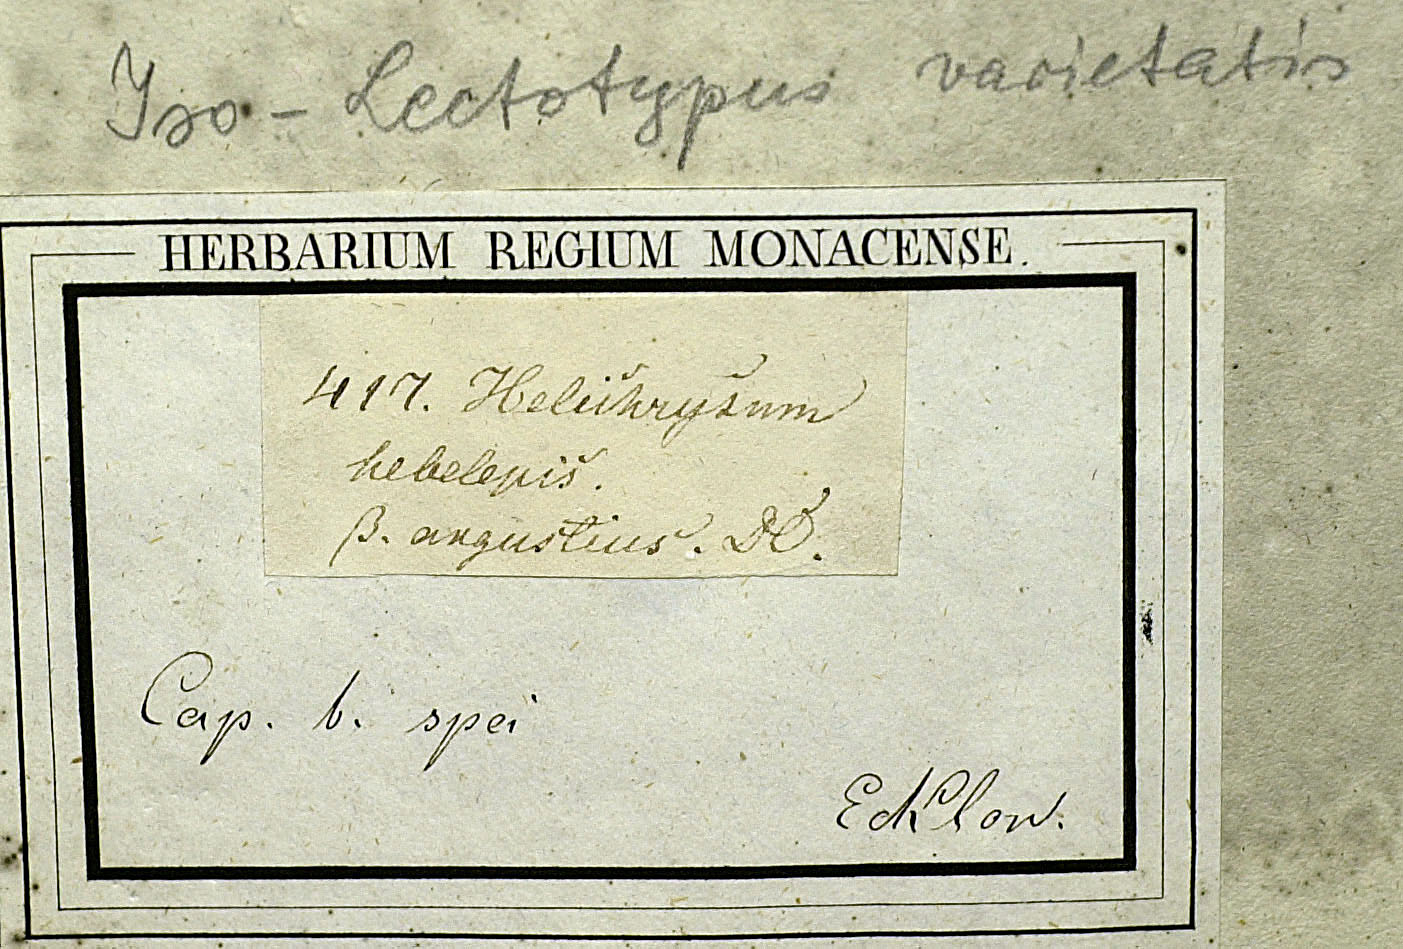 Iso-Lectotypus varietatis
HERBARIUM REGIUM MONACENSE.
417. Helichrysum
hebelepis.
β. angustius. DC.
Cap. b. spei
Ecklon.